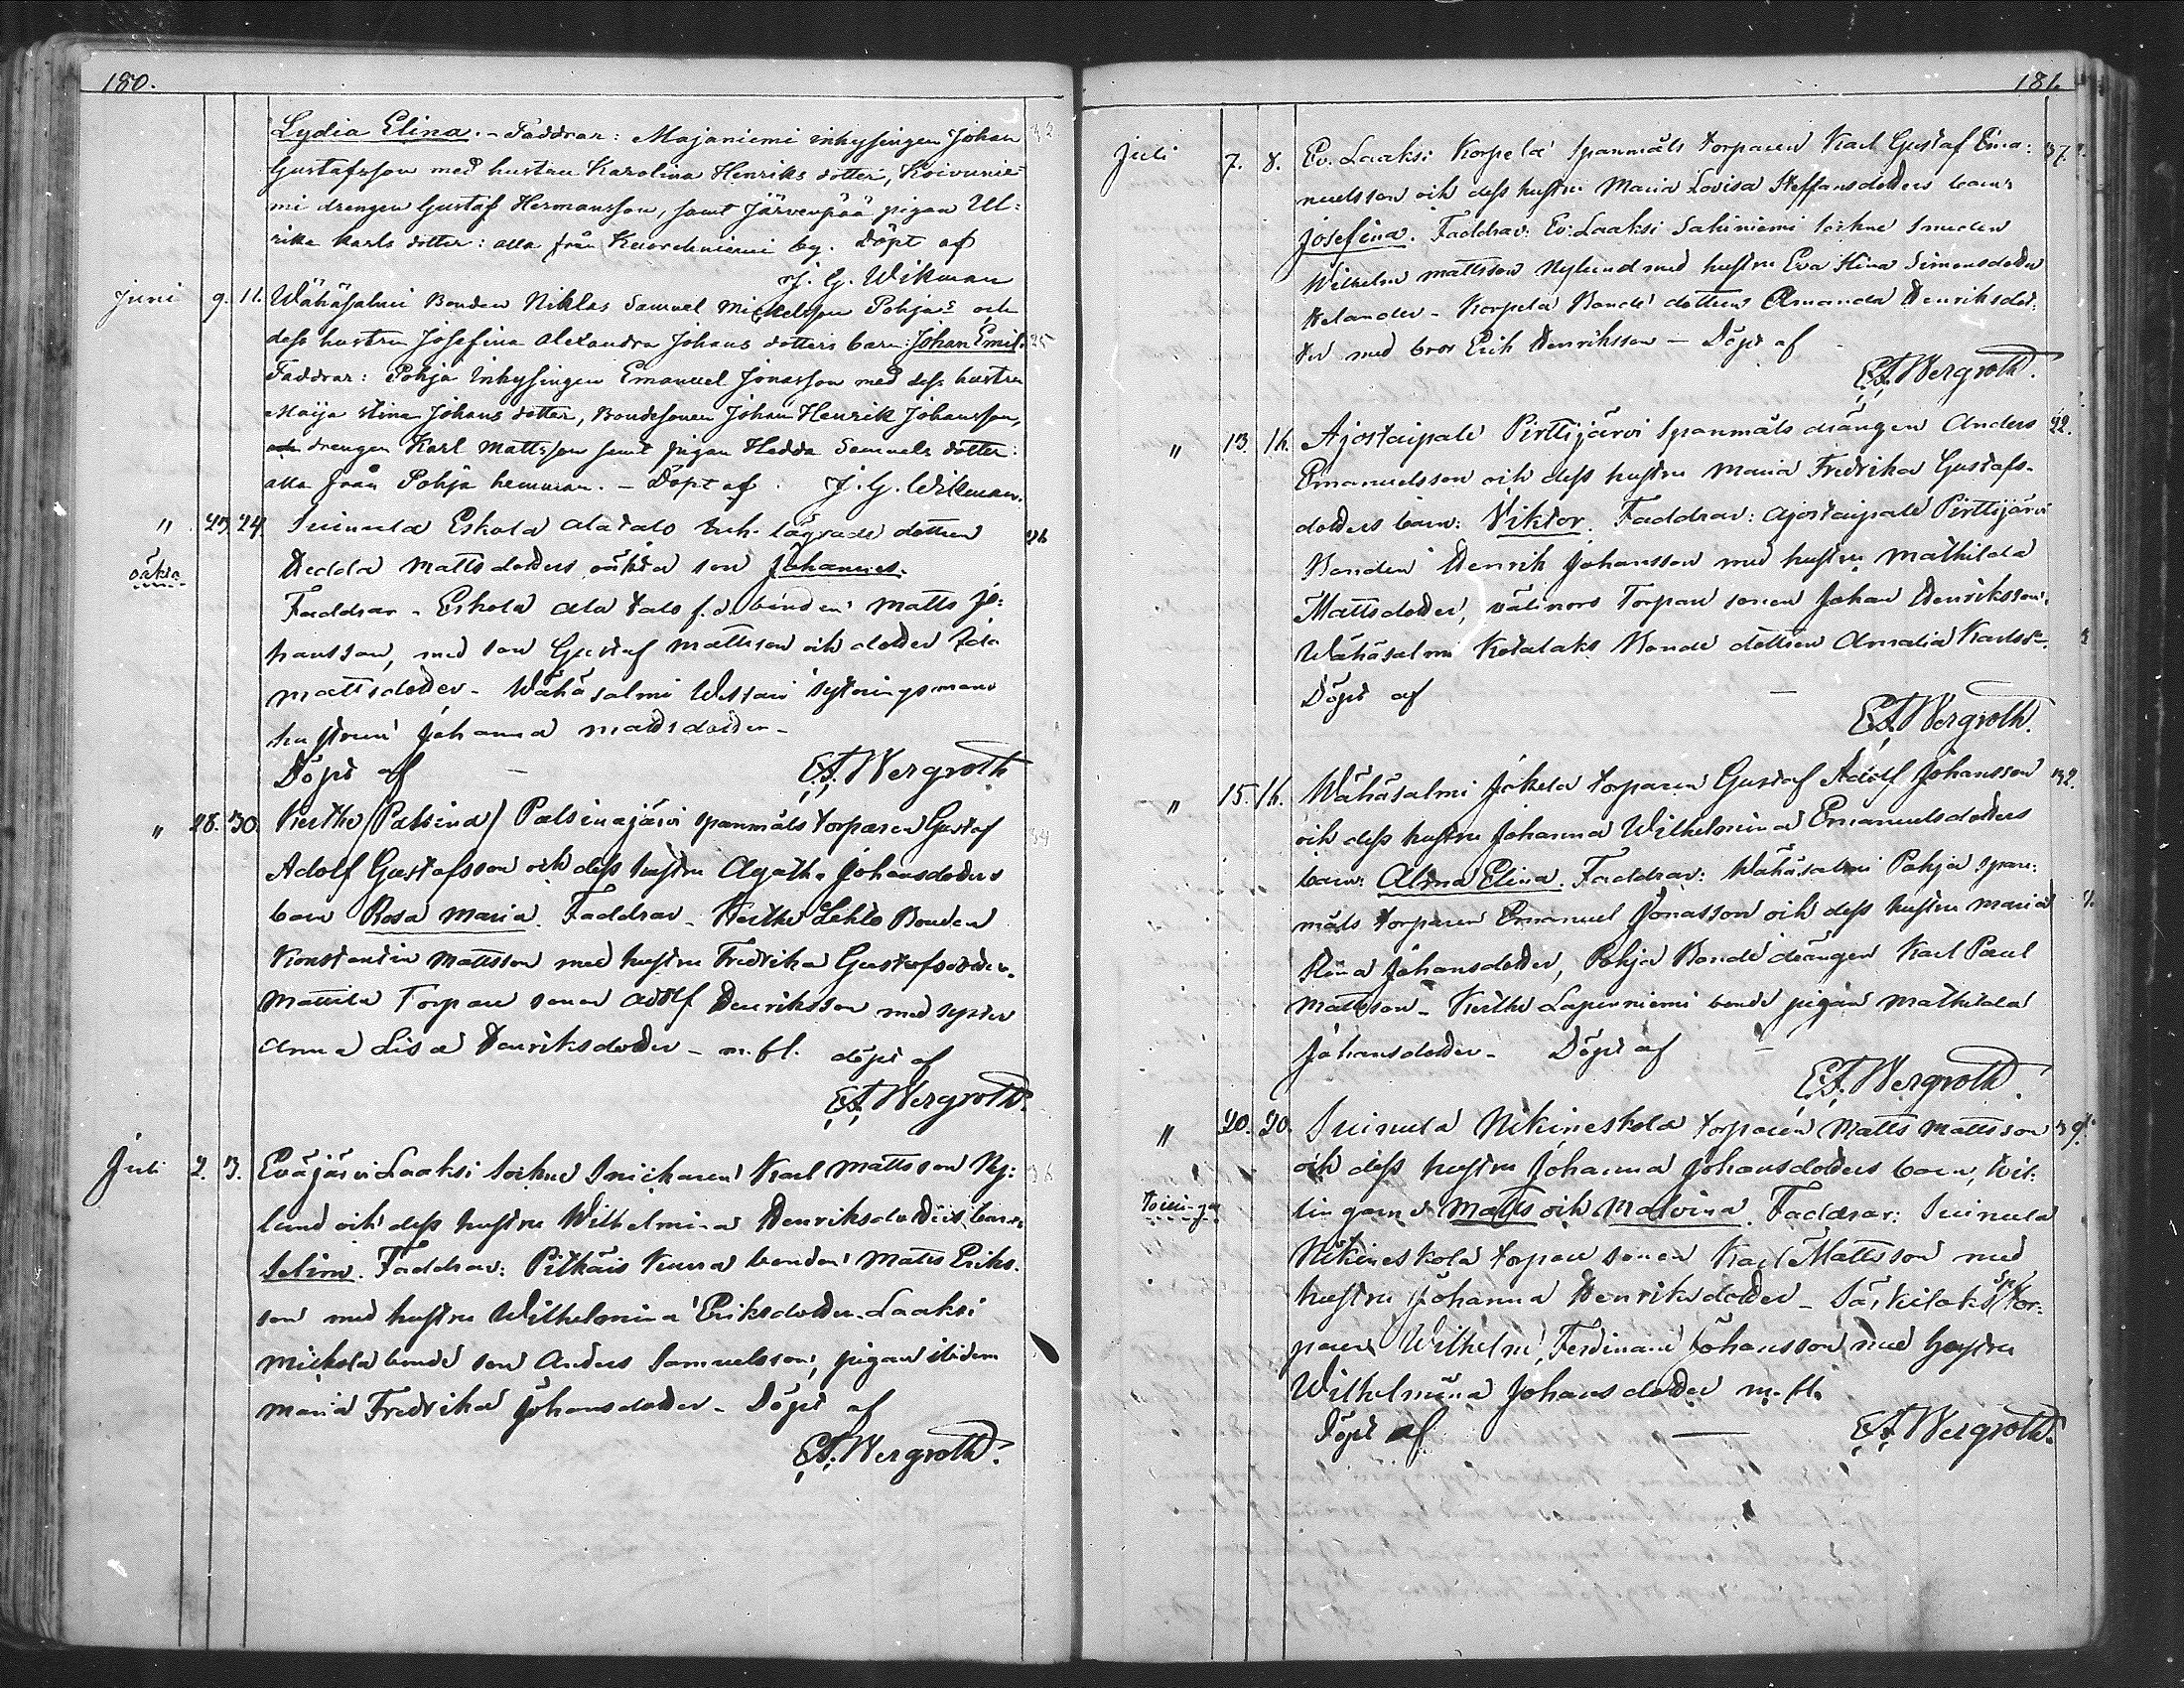 180.
Lydia Elina. - Faddrar: Majaniemi inhysingen Johan 32
Gustafsson med hustru Karolina Henriks dotter, Koivunie-
mi drengen Gustaf Hermansson, samt Järvenpää pigan Ul:
rika Karls dotter: alla från Kuorehniemi by. Döpt af
J. G. Wikman
Juni 9. 11. Wähäsalmi Bonden Niklas Samuel Michelsson Pohja och
dess hustru Josefina Alexandra Johans dotters barn: Johan Emil. 25
Faddrar: Pohja Inhysingen Emanuel Jonasson med dess hustru
Maija Stina Johans dotter, Bondesonen Johan Henrik Johansson,
och drengen Karl Mattsson samt pigan Hedda Samuels dotter:
alla från Pohja hemman. - Döpt af J. G. Wikman.
" 23. 24. Suinula Eskola Alatalo inh. lägrade dottren 26
oäkta Hedda Mattsdotters oäkta son Johannes.
Faddrar - Eskola Ala talo f.d. bonden Matts Jo:
hansson, med son Gustaf Mattsson och dotter Ida
Mattsdotter - Wähäsalmi Westari sytningsmans
hustrun Johanna Mattsdotter -
Döpt af - E. F. Wergroth
" 28. 30. Kerthe (Patsina) Patsinajärvi spanmåls torparen Gustaf 34
Adolf Gustafsson och dess hustru Agatha Johansdotters
barn Rosa Maria. Faddrar - Kerthe Lehto Bonden
Konstantin Mattsson med hustru Fredrika Gustafsdotter.
Mattila Torpare sonen Adolf Henriksson med syster
Anna Lisa Henriksdotter - m. fl. döpt af
E. F. Wergroth.
Juli 2. 3. Eväjärvi Laaksi Sockne Snickaren Karl Mattsson Ny: 36
lund och dess hustru Wilhelmina Henriksdotters barn
Selim. Faddrar: Pitkäis Kuura bonden Matts Eriks-
son med hustru Wilhelmina Eriksdotter. Laaksi
Mickola bonde son Anders Samuelsson, pigan ibidem
Maria Fredrika Johansdotter - Döpt af
E. F. Wergroth.
181.
Juli 7. 8. Ev. Laaksi Korpela spanmåls torparen Karl Gustaf Ema: 37.
nuelsson och dess hustru Maria Lovisa Steffansdotters barn
Josefina. Faddrar: Ev: Laaksi Sahiniemi Sockne Smeden
Wilhelm Mattsson Nylund med hustru Eva Stina Simonsdotter
Helander - Korpela Bonde dottren Amanda Henriksdot:
ter med bror Erik Henriksson - Döpt af
E. F. Wergroth.
" 13. 16. Ajostaipale Pirttijärvi Spanmåls drängen Anders 22.
Emanuelsson och dess hustru Maria Fredrika Gustafs-
dotters barn: Viktor. Faddrar: Ajostaipale Pirttijärvi
Bonden Henrik Johansson med hustru Mathilda
Mattsdotter, Torpare sonen Johan Henriksson,
Wähäsalmi Kotalaks Bonde dottren Amalia Karlsd.
Döpt af -
E. F. Wergroth.
" 15. 16. Wähäsalmi Jokela torparen Gustaf Adolf Johansson 32.
och dess hustru Johanna Wilhelmina Emanuelsdotters
barn: Alma Elina. Faddrar: Wähäsalmi Pohja span:
måls torparen Emanuel Jonasson och dess hustru Maria
Stina Johansdotter, Pohja Bonde drängen Karl Paul
Mattsson - Kerthe Lapinniemi bonde pigan Mathilda
Johansdotter - Döpt af -
E. F. Wergroth.
" 20. 20. Suinula Nikineskola torparen Matts Mattsson 39.
och dess hustru Johanna Johansdotters barn, tvil:
tvillingar lingarne Matts och Malvina. Faddrar: Suinula
Nikineskola torpare sonen Karl Mattsson med
hustru Johanna Henriksdotter - Särkilaks sp. tor:
paren Wilhelm Ferdinand Johansson med hustru
Wilhelmina Johansdotter m. fl.
Döpt af - E. F. Wergroth.